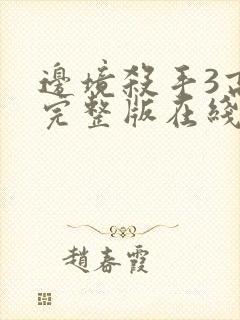 邊境殺手3高
完整版在綫
趙春霞